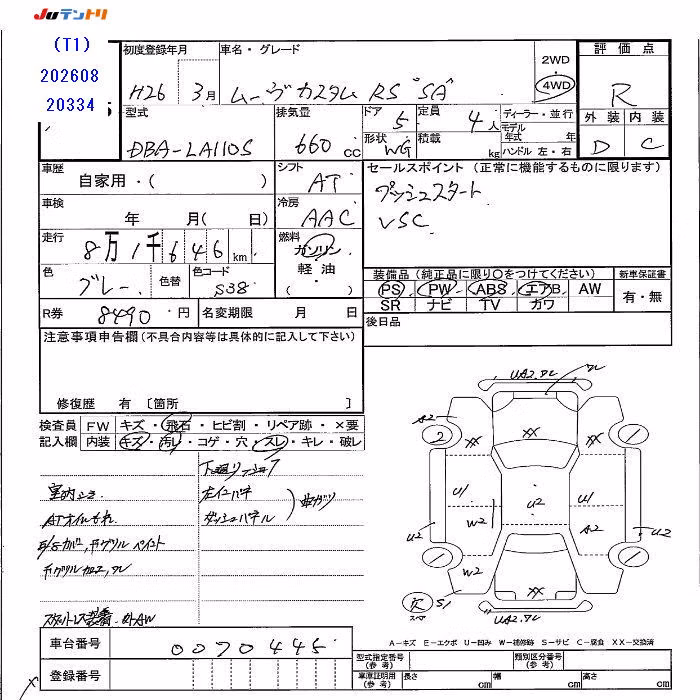 JUテントリ
(T1)
202608
20334
初度登録年月
H26 3月
車名・グレード
ムーヴカスタム RS "SA"
2WD
4WD
評価点
R
外装 内装
D C
型式
DBA-LA110S
排気量
660 cc
ドア
5
定員
4人
形状
WG
積載
kg
ディーラー・並行
モデル年式 年
ハンドル 左・右
車歴
自家用・( )
シフト
AT
セールスポイント (正常に機能するものに限ります)
プッシュスタート
VSC
車検
年 月( 日)
冷房
AAC
走行
8万1千646km
燃料
ガソリン
・
軽油
・
( )
色
グレー
色替
色コード
S38
装備品 (純正品に限り○をつけてください)
PS PW ABS エアB AW
SR ナビ TV カワ
新車保証書
有・無
R券
8490円
名変期限 月 日
後日品
注意事項申告欄 (不具合内容等は具体的に記入して下さい)
修復歴 有 〔箇所 〕
検査員記入欄
FW キズ・飛石・ヒビ割・リペア跡・×要
内装 キズ・汚レ・コゲ・穴・スレ・キレ・破レ
ATオイルもれ
左インパネ
ダッシュパネル
UA2.ワレ
ワレ
A2
2
XX
XX
U1
W2
U2
U2
U1
A2
U2
W2
XX
欠
スペア
S1
UA2.ワレ
A-キズ E-エクボ U-凹み W-補修跡 S-サビ C-腐食 XX-交換済
車台番号
0070445
登録番号
型式指定番号 (参考)
類別区分番号 (参考)
車庫証明用 (参考)
長さ cm
幅 cm
高さ cm